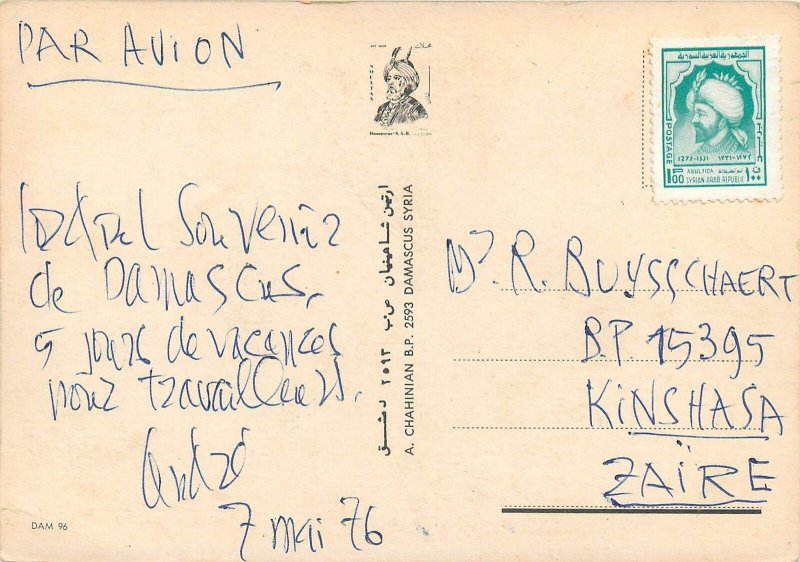 PAR AVION
Idéal Souvenir
de DAMASCUS.
5 jours de vacances
pour travailleurs.
André
7 mai 76
DAM 96
Damascus-S.A.R.
ارتين شاهينيان ص.ب ٢٥٩٣ دمشق
A. CHAHINIAN B.P. 2593 DAMASCUS SYRIA
الجمهورية العربية السورية
POSTAGE
1273-1331 ١٢٧٣-١٣٣١
100
ABULFIDA
SYRIAN ARAB REPUBLIC
Mr R. BUYSSCHAERT
B.P. 15395
KINSHASA
ZAÏRE